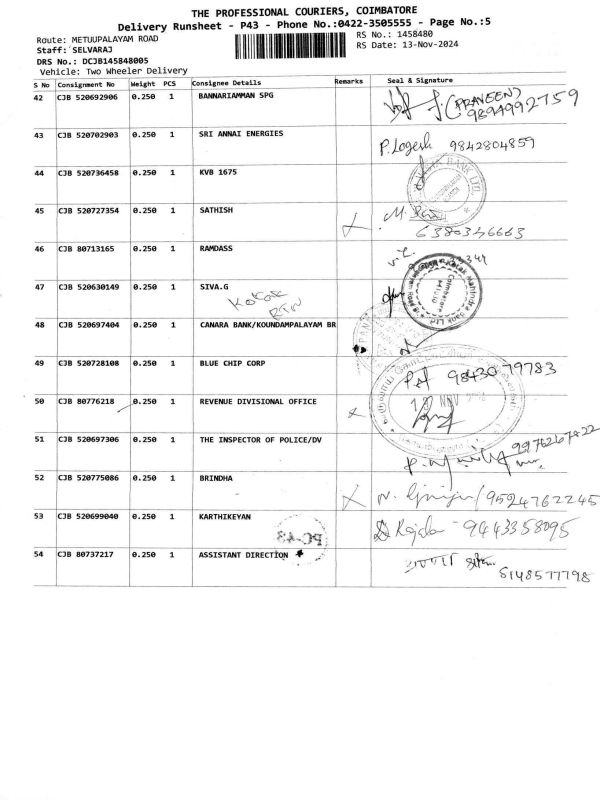 THE PROFESSIONAL COURIERS, COIMBATORE
Delivery Runsheet - P43 - Phone No.:0422-3505555 - Page No.:5
Route: METUUPALAYAM ROAD
RS No.: 1458480
Staff: SELVARAJ
RS Date: 13-Nov-2024
DRS No.: DCJB145848005
Vehicle: Two Wheeler Delivery
S No Consignment No Weight PCS Consignee Details Remarks Seal & Signature
42 CJB 520692906 0.250 1 BANNARIAMMAN SPG (PRAVEEN) 9894992759
43 CJB 520702903 0.250 1 SRI ANNAI ENERGIES P. Logesh 9842804859
44 CJB 520736458 0.250 1 KVB 1675
45 CJB 520727354 0.250 1 SATHISH
6380346663
46 CJB 80713165 0.250 1 RAMDASS
47 CJB 520630149 0.250 1 SIVA.G
KOTAK
48 CJB 520697404 0.250 1 CANARA BANK/KOUNDAMPALAYAM BR
49 CJB 520728108 0.250 1 BLUE CHIP CORP 98430 79783
50 CJB 80776218 0.250 1 REVENUE DIVISIONAL OFFICE
51 CJB 520697306 0.250 1 THE INSPECTOR OF POLICE/DV
52 CJB 520775086 0.250 1 BRINDHA 9524762245
53 CJB 520699040 0.250 1 KARTHIKEYAN 9443358095
PC-43
54 CJB 80737217 0.250 1 ASSISTANT DIRECTION